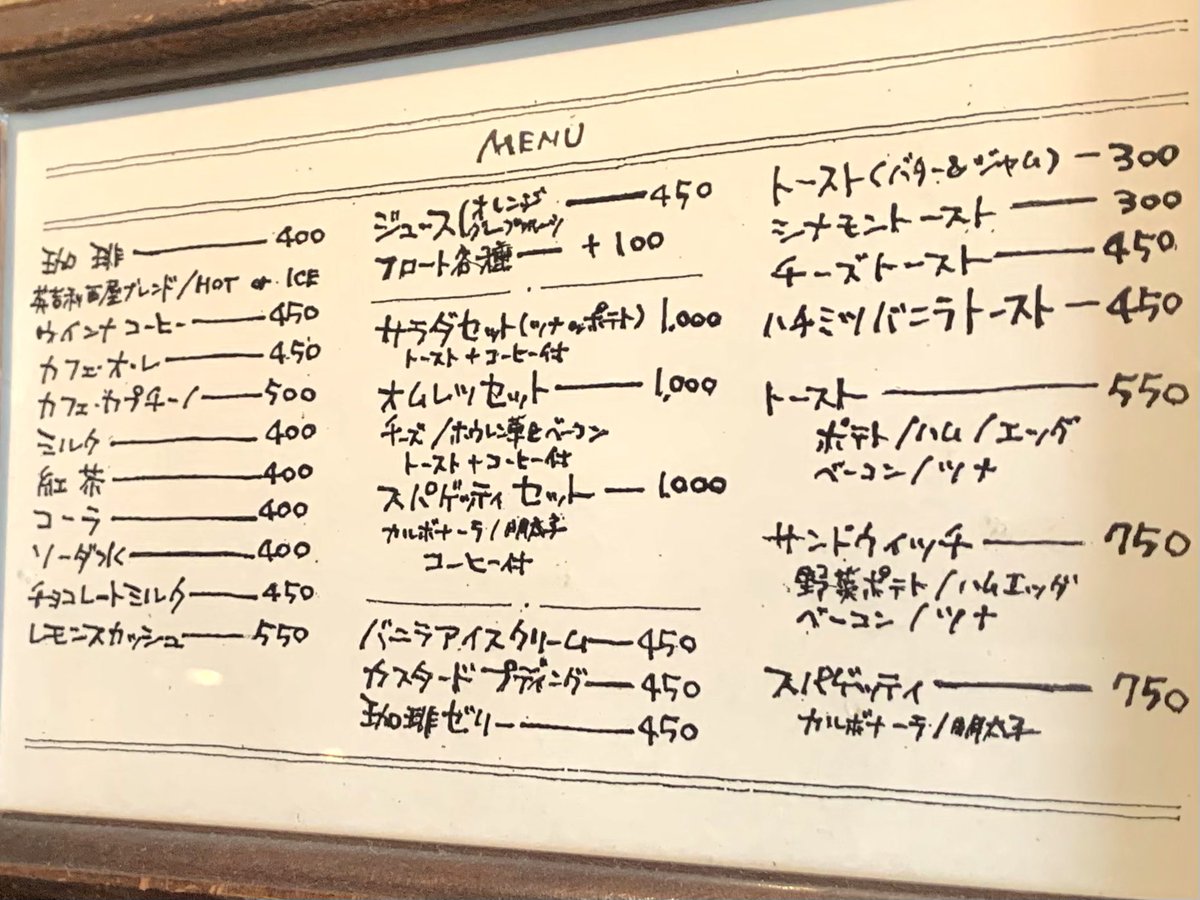 MENU
珈琲 400
英吉利西屋ブレンド/HOT or ICE
ウインナコーヒー 450
カフェ・オ・レ 450
カフェ・カプチーノ 500
ミルク 400
紅茶 400
コーラ 400
ソーダ水 400
チョコレートミルク 450
レモンスカッシュ 550
ジュース(オレンジ 450
グレープフルーツ
フロート各種 +100
サラダセット(ツナorポテト) 1,000
トースト+コーヒー付
オムレツセット 1,000
チーズ/ホウレン草とベーコン
トースト+コーヒー付
スパゲッティセット 1,000
カルボナーラ/明太子
コーヒー付
バニラアイスクリーム 450
カスタードプディング 450
珈琲ゼリー 450
トースト(バター&ジャム) 300
シナモントースト 300
チーズトースト 450
ハチミツバニラトースト 450
トースト 550
ポテト/ハム/エッグ
ベーコン/ツナ
サンドウィッチ 750
野菜ポテト/ハムエッグ
ベーコン/ツナ
スパゲッティ 750
カルボナーラ/明太子